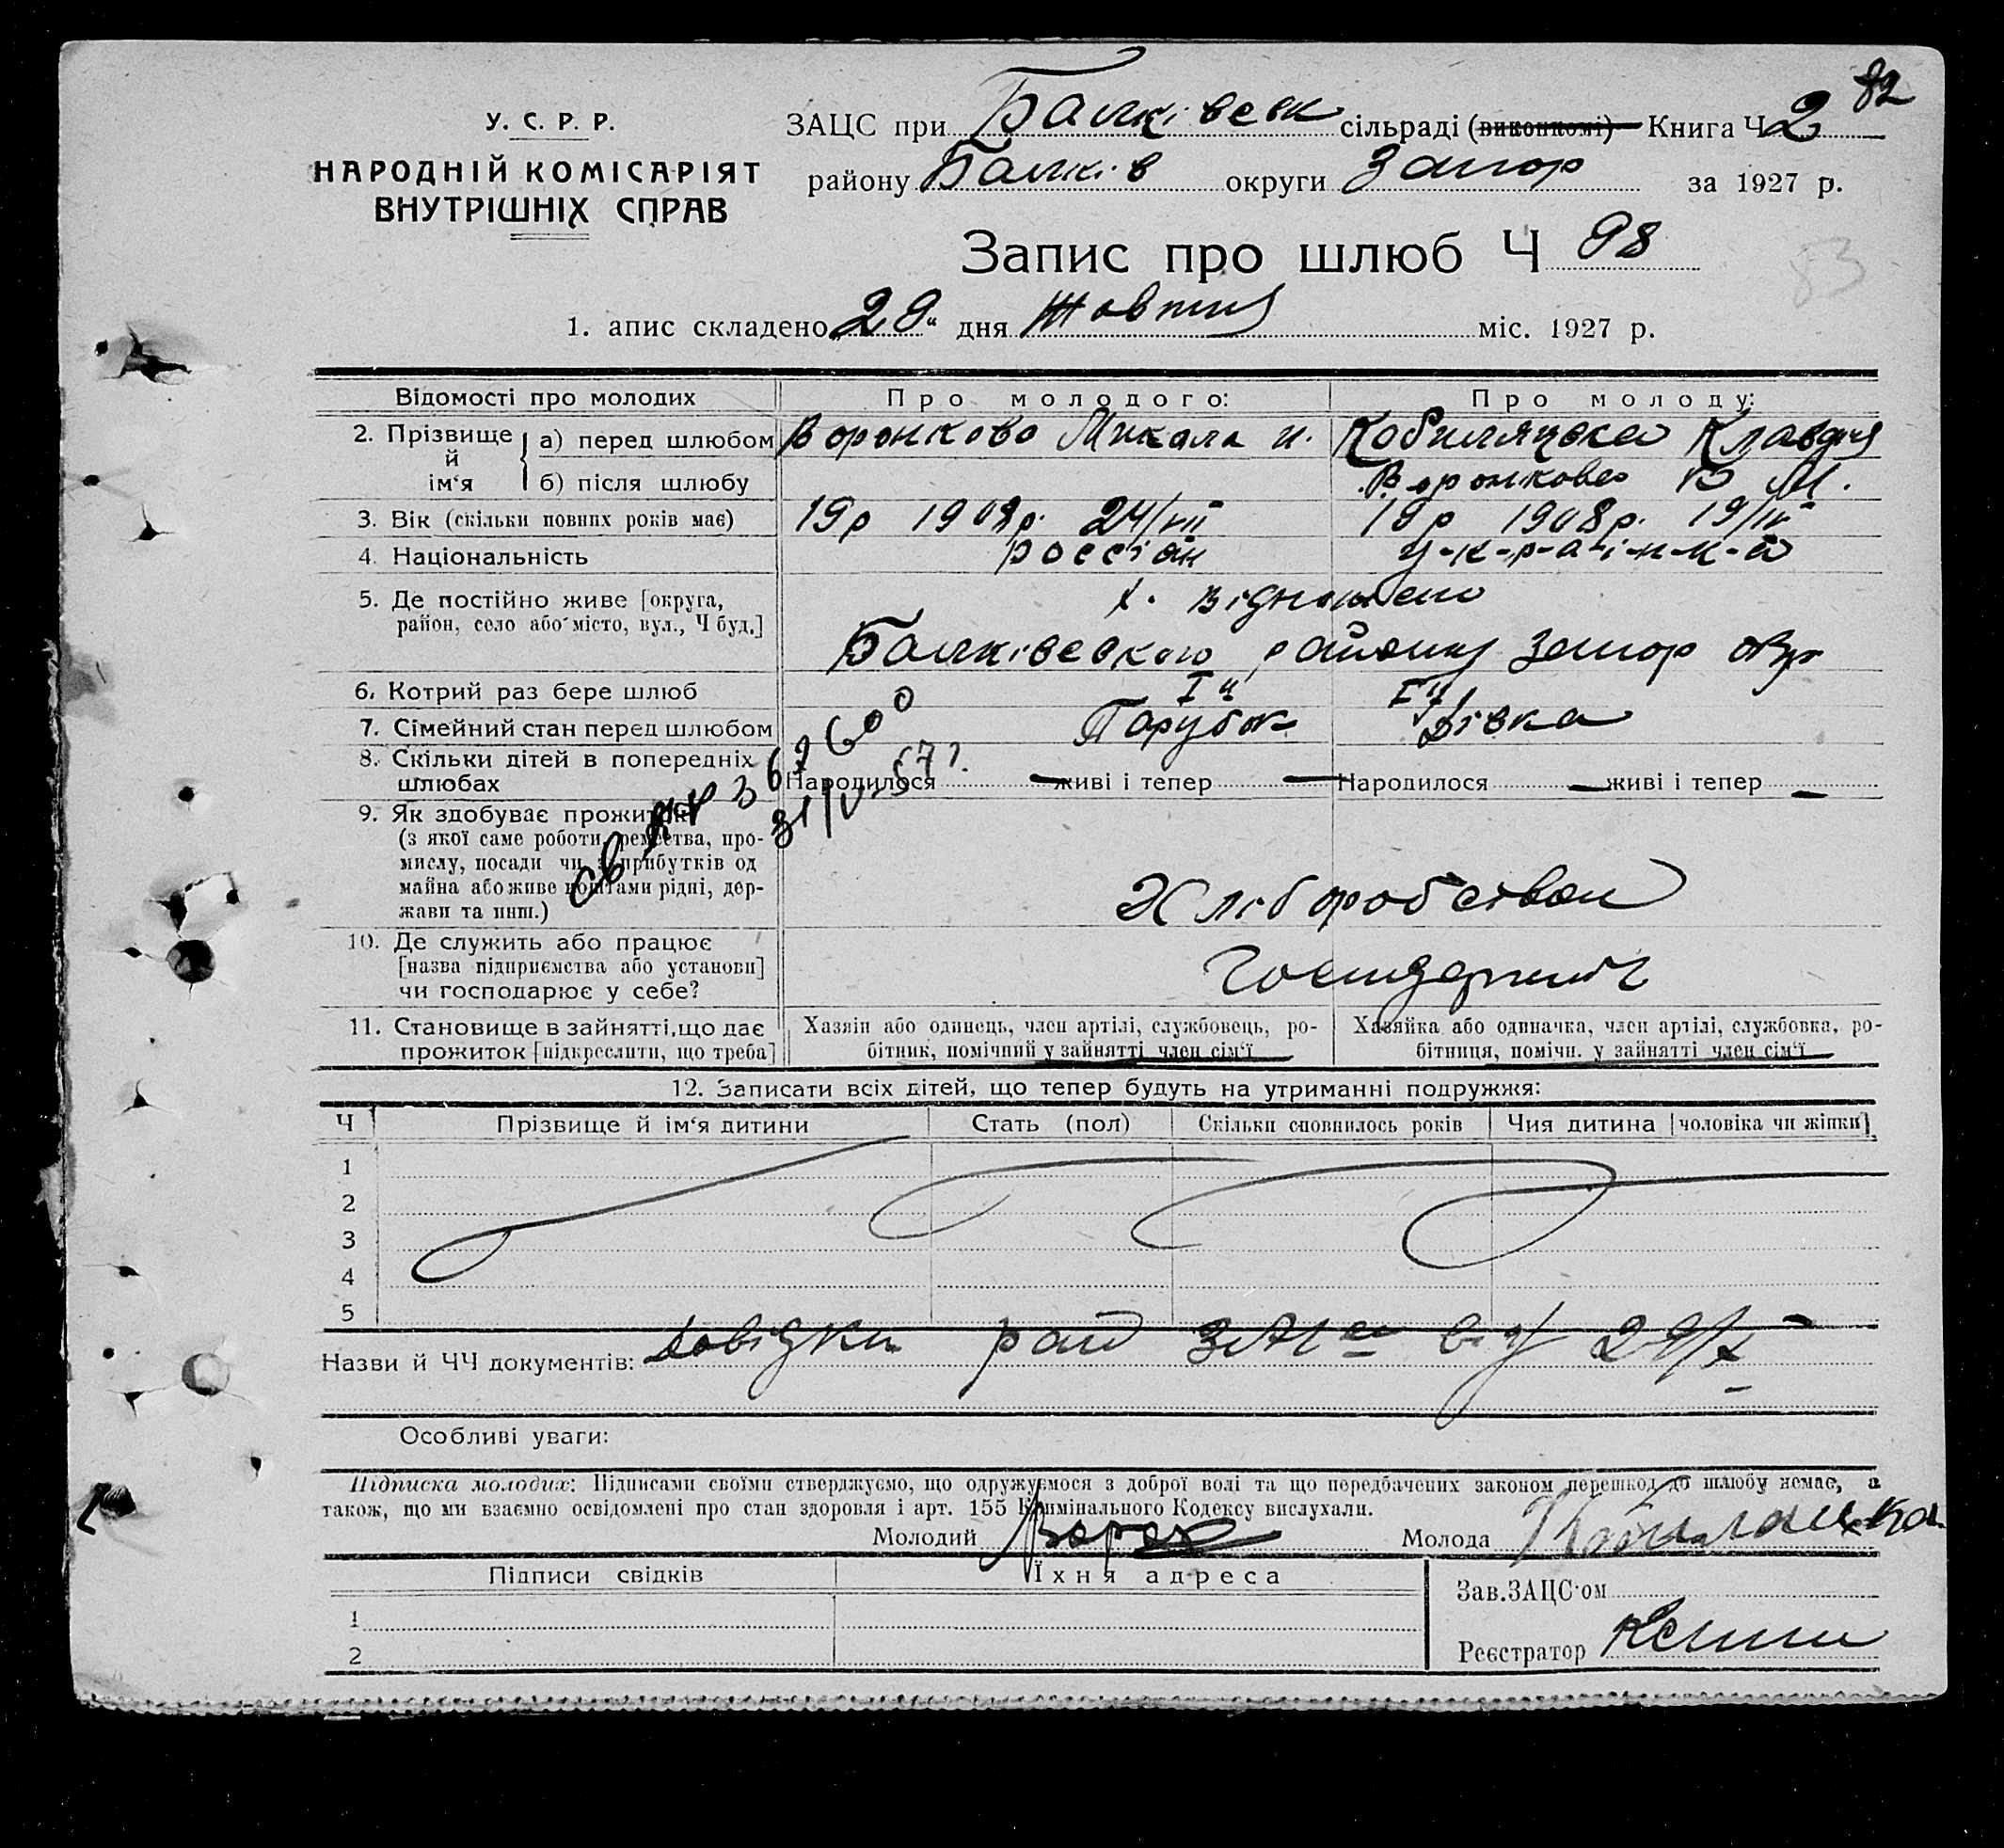 82
У. С. Р. Р.
НАРОДНІЙ КОМІСАРІЯТ
ВНУТРІШНІХ СПРАВ
ЗАЦС при Балківськ сільраді (виконкомі) Книга Ч 2
району Балків округи Запор за 1927 р.
Запис про шлюб Ч 98
83
1. апис складено „29“ дня Жовтня міс. 1927 р.
Відомості про молодих
Про молодого:
Про молоду:
2. Прізвище й ім‘я
а) перед шлюбом
Воронково Микола
Кобиляцька Клавдія
б) після шлюбу
Воронкова
3. Вік (скільки повних років має)
19р 1908р. 24/VII
19р 1908р. 19/IV
4. Національність
россіян
у-к-р-а-ї-н-к-а
5. Де постійно живе [округа,
район, село або місто, вул., Ч буд.]
х.
Балківського району Запор окр
6. Котрий раз бере шлюб
І й
І й
7. Сімейний стан перед шлюбом
Парубок
Дівка
8. Скільки дітей в попередніх
шлюбах
Народилося — живі і тепер —
Народилося — живі і тепер —
9. Як здобуває прожиток
(з якої саме роботи, ремества, про-
мислу, посади чи з прибутків од
майна або живе коштами рідні, дер-
жави та инш.)
Хліборобством
10. Де служить або працює
[назва підприємства або установи]
чи господарює у себе?
11. Становище в зайнятті, що дає
прожиток [підкреслити, що треба]
Хазяін або одинець, член артілі, службовець, ро-
бітник, помічний у зайнятті член сім‘ї
Хазяйка або одиначка, член артілі, службовка, ро-
бітниця, помічн. у зайнятті член сім‘ї
12. Записати всіх дітей, що тепер будуть на утриманні подружжя:
Ч
Прізвище й ім‘я дитини
Стать (пол)
Скільки сповнилось років
Чия дитина [чоловіка чи жінки]
1
2
3
4
5
Назви й ЧЧ документів: Довідки рай від 29/X
Особливі уваги:
Підписка молодих: Підписами своїми стверджуємо, що одружуємося з доброї волі та що передбачених законом перешкод до шлюбу немає, а
також, що ми взаємно освідомлені про стан здоровля і арт. 155 Кримінального Кодексу вислухали.
Молодий
Молода Кобиляцька
Підписи свідків
Їхня адреса
1
2
Зав. ЗАЦС‘ом
Реєстратор